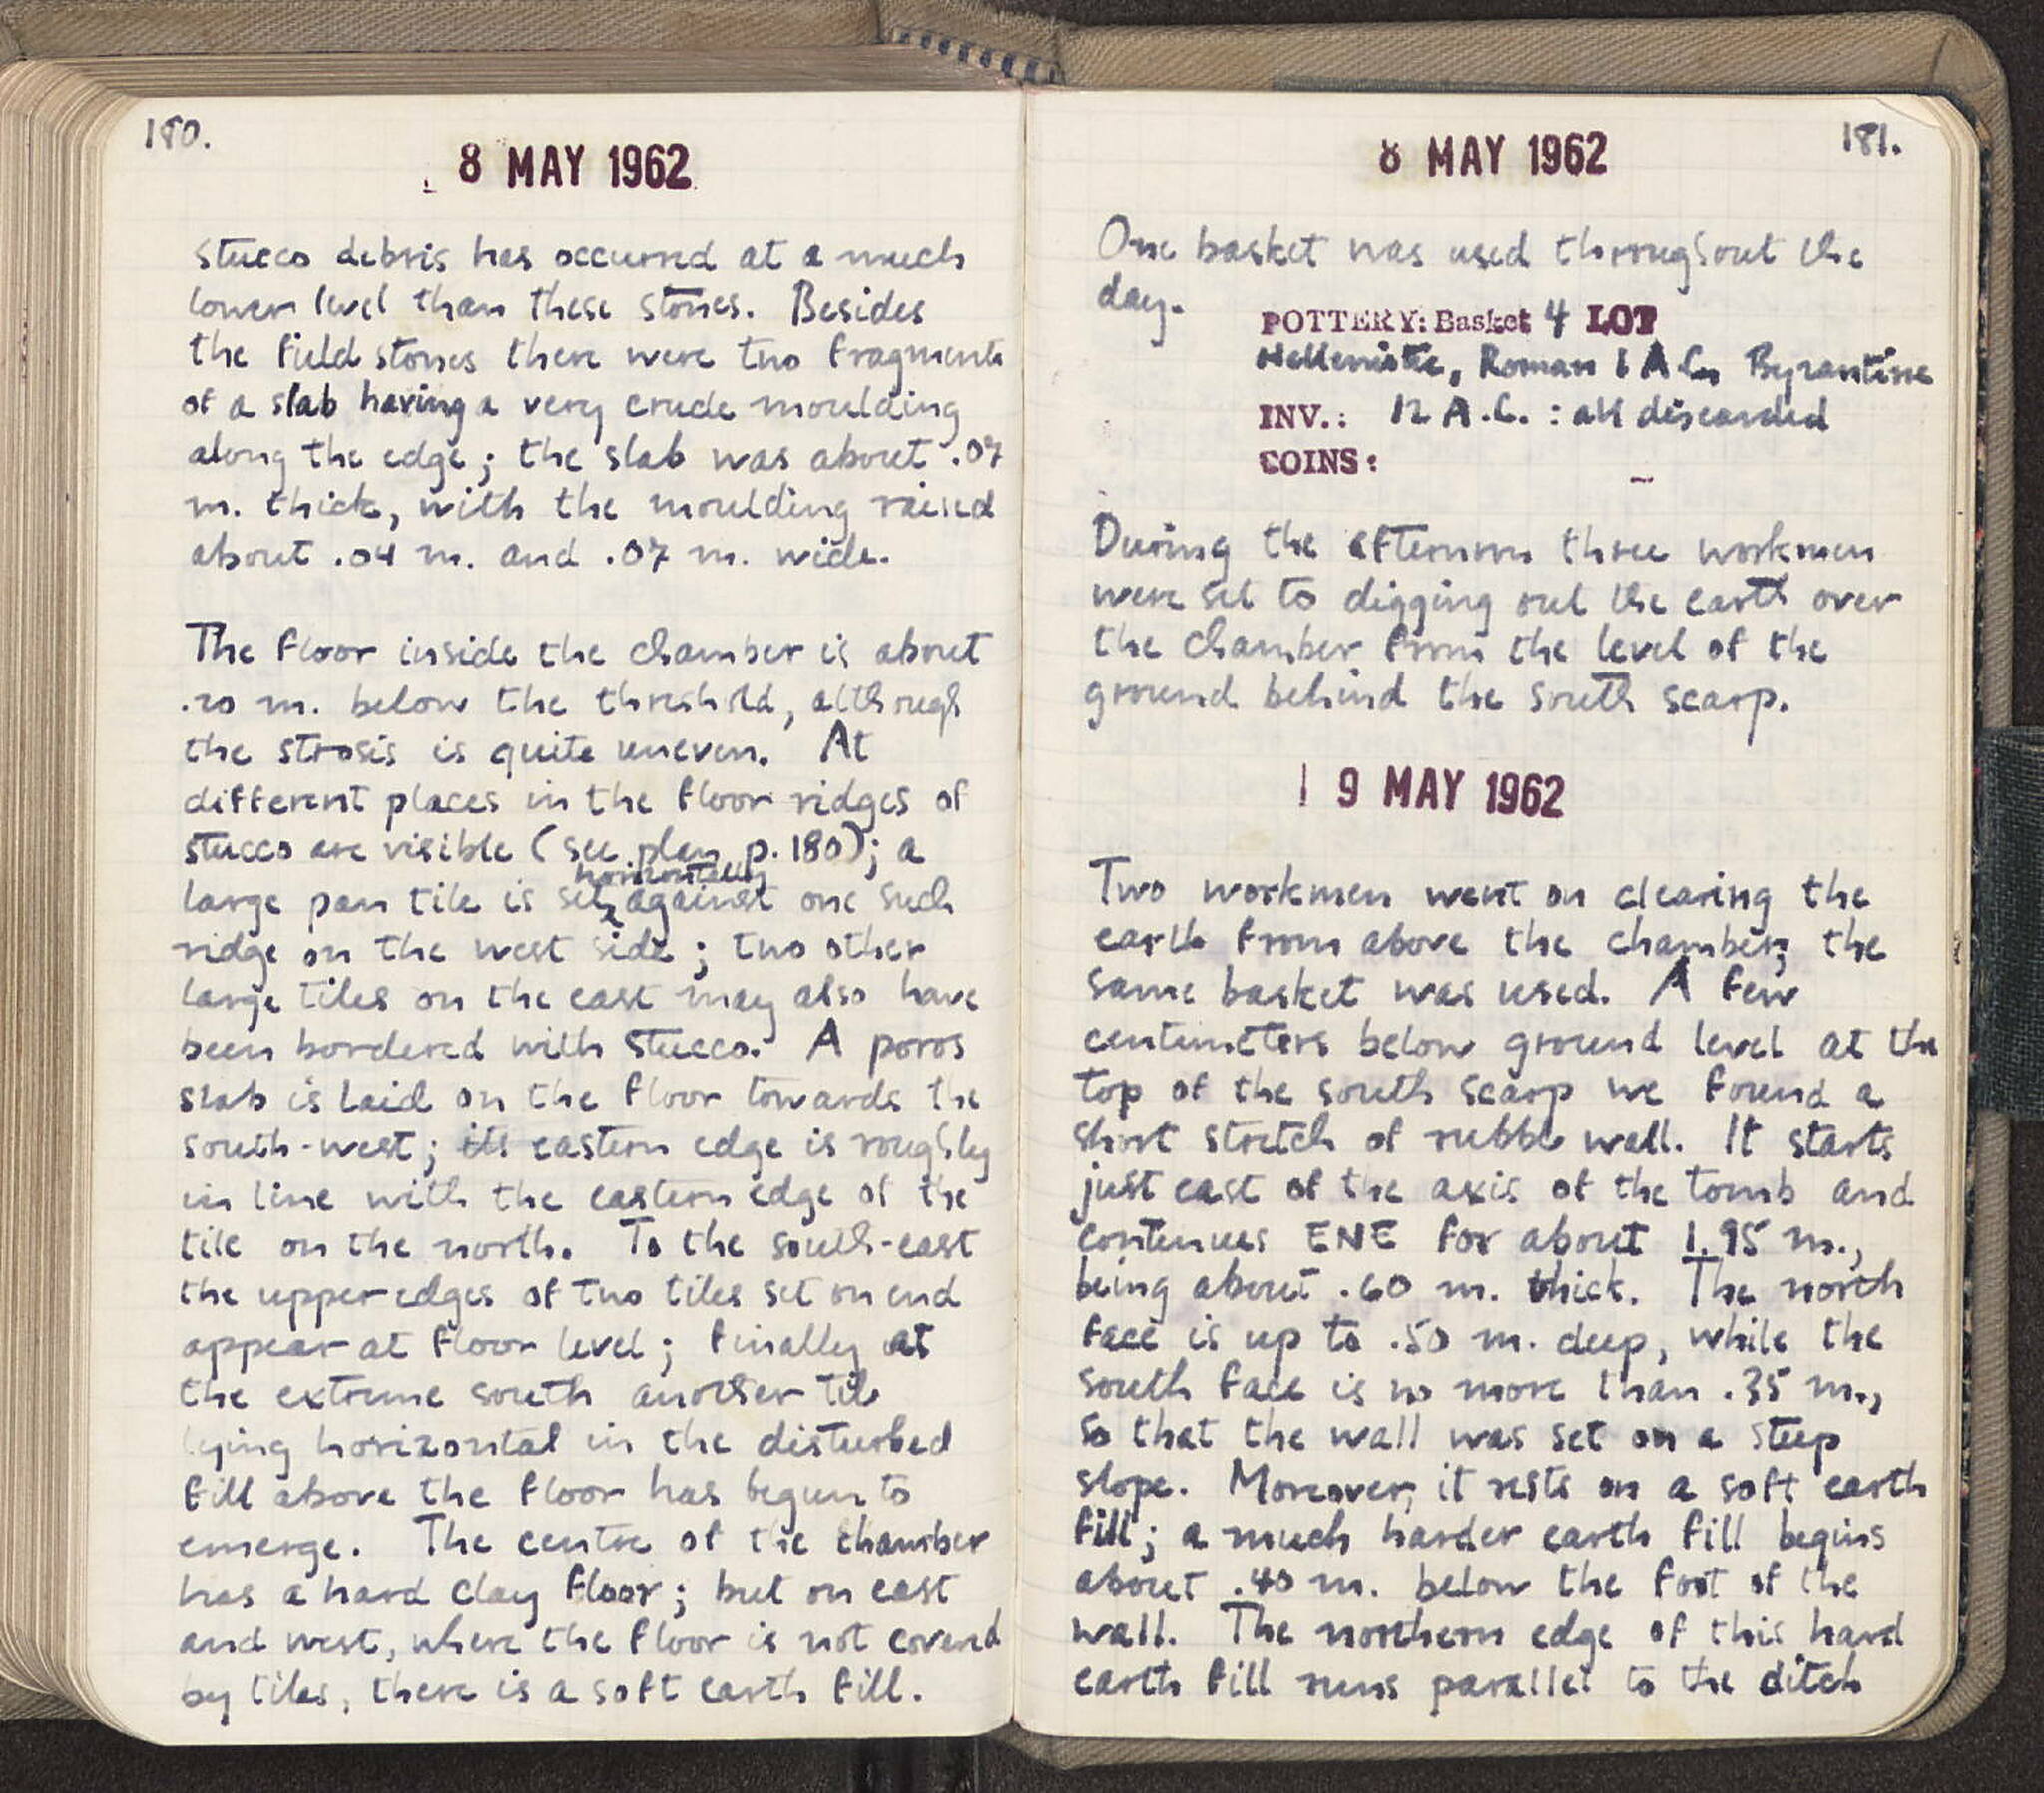 180.
8 MAY 1962
stucco debris has occurred at a much
lower level than these stones. Besides
the field stones there were two fragments
of a slab having a very crude moulding
along the edge; the slab was about .07
m. thick, with the moulding raised
about .04 m. and .07 m. wide.
The floor inside the chamber is about
.20 m. below the threshold, although
the strosis is quite uneven. At
different places in the floor ridges of
stucco are visible (see plan p. 180); a
horizontally
large pan tile is set against one such
ridge on the west side; two other
large tiles on the east may also have
been bordered with stucco. A poros
slab is laid on the floor towards the
south-west; its eastern edge is roughly
in line with the eastern edge of the
tile on the north. To the south-east
the upper edges of two tiles set on end
appear at floor level; finally at
the extreme south another tile
lying horizontal in the disturbed
fill above the floor has begun to
emerge. The centre of the chamber
has a hard clay floor; but on east
and west, where the floor is not covered
by tiles, there is a soft earth fill.
8 MAY 1962
181.
One basket was used throughout the
day.
POTTERY: Basket 4 LOT
Hellenistic, Roman 1 A.C., Byzantine
INV.: 12 A.C. : all discarded
COINS: –
During the afternoon three workmen
were set to digging out the earth over
the chamber from the level of the
ground behind the south scarp.
9 MAY 1962
Two workmen went on clearing the
earth from above the chamber; the
same basket was used. A few
centimeters below ground level at the
top of the south scarp we found a
short stretch of rubble wall. It starts
just east of the axis of the tomb and
continues ENE for about 1.95 m.,
being about .60 m. thick. The north
face is up to .50 m. deep, while the
south face is no more than .35 m.,
so that the wall was set on a steep
slope. Moreover, it rests on a soft earth
fill; a much harder earth fill begins
about .40 m. below the foot of the
wall. The northern edge of this hard
earth fill runs parallel to the ditch